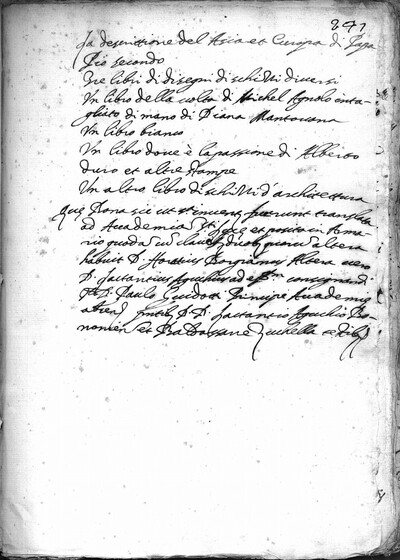 897
La descrittione del Asia et Europa di Papa
Pio secondo
Tre libri di disegni di schizzi diversi
Un libro della volta di Michel Agnolo inta-
gliato di mano di Diana Mantovana
Un libro bianco
Un libro dove è la passione di Alberto
duro et altre stampe
Un altro libro di schizzi d'architettura
Que bona sic ut st invent. fuerunt translata
ad Academia et posita in Arma
rio quodam clavib. quarum altera
habuit D. Horatius Borgianus Altera vero
D. Lactantius ad consignandi
D. Paulo Guidotti Principi Academie
D. D. Lactantio Bo
nonien. et Baldassarre